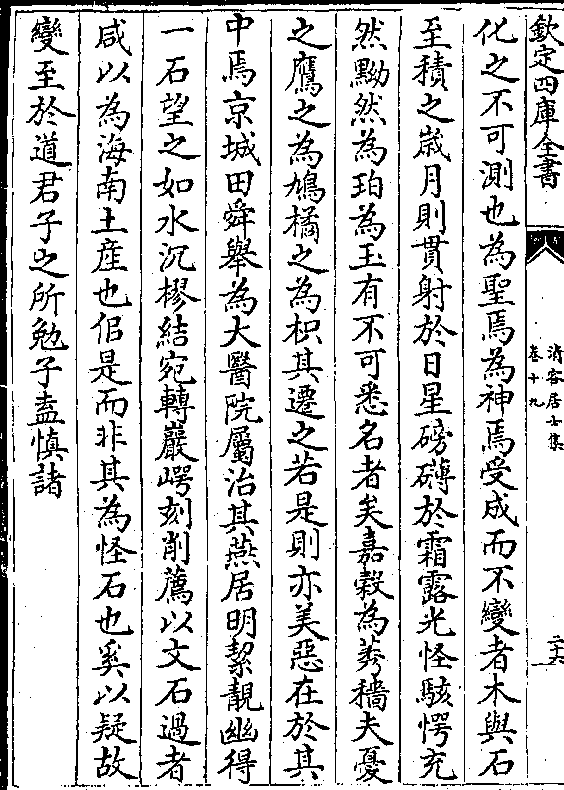 欽定四庫全書
清容居士集
卷十九
二十六
化之不可測也為聖焉為神焉受成而不變者木與石
至積之歲月則貫射於日星磅礴於霜露光怪駭愕充
然黝然為珀為玉有不可悉名者矣嘉穀為莠穡夫憂
之鷹之為鳩橘之為枳其遷之若是則亦美惡在於其
中焉京城田舜舉為大醫院屬治其燕居明絜靚幽得
一石望之如水沉樛結宛轉巖崿刻削薦以文石過者
咸以為海南土產也佀是而非其為怪石也奚以疑故
變至於道君子之所勉子盍慎諸